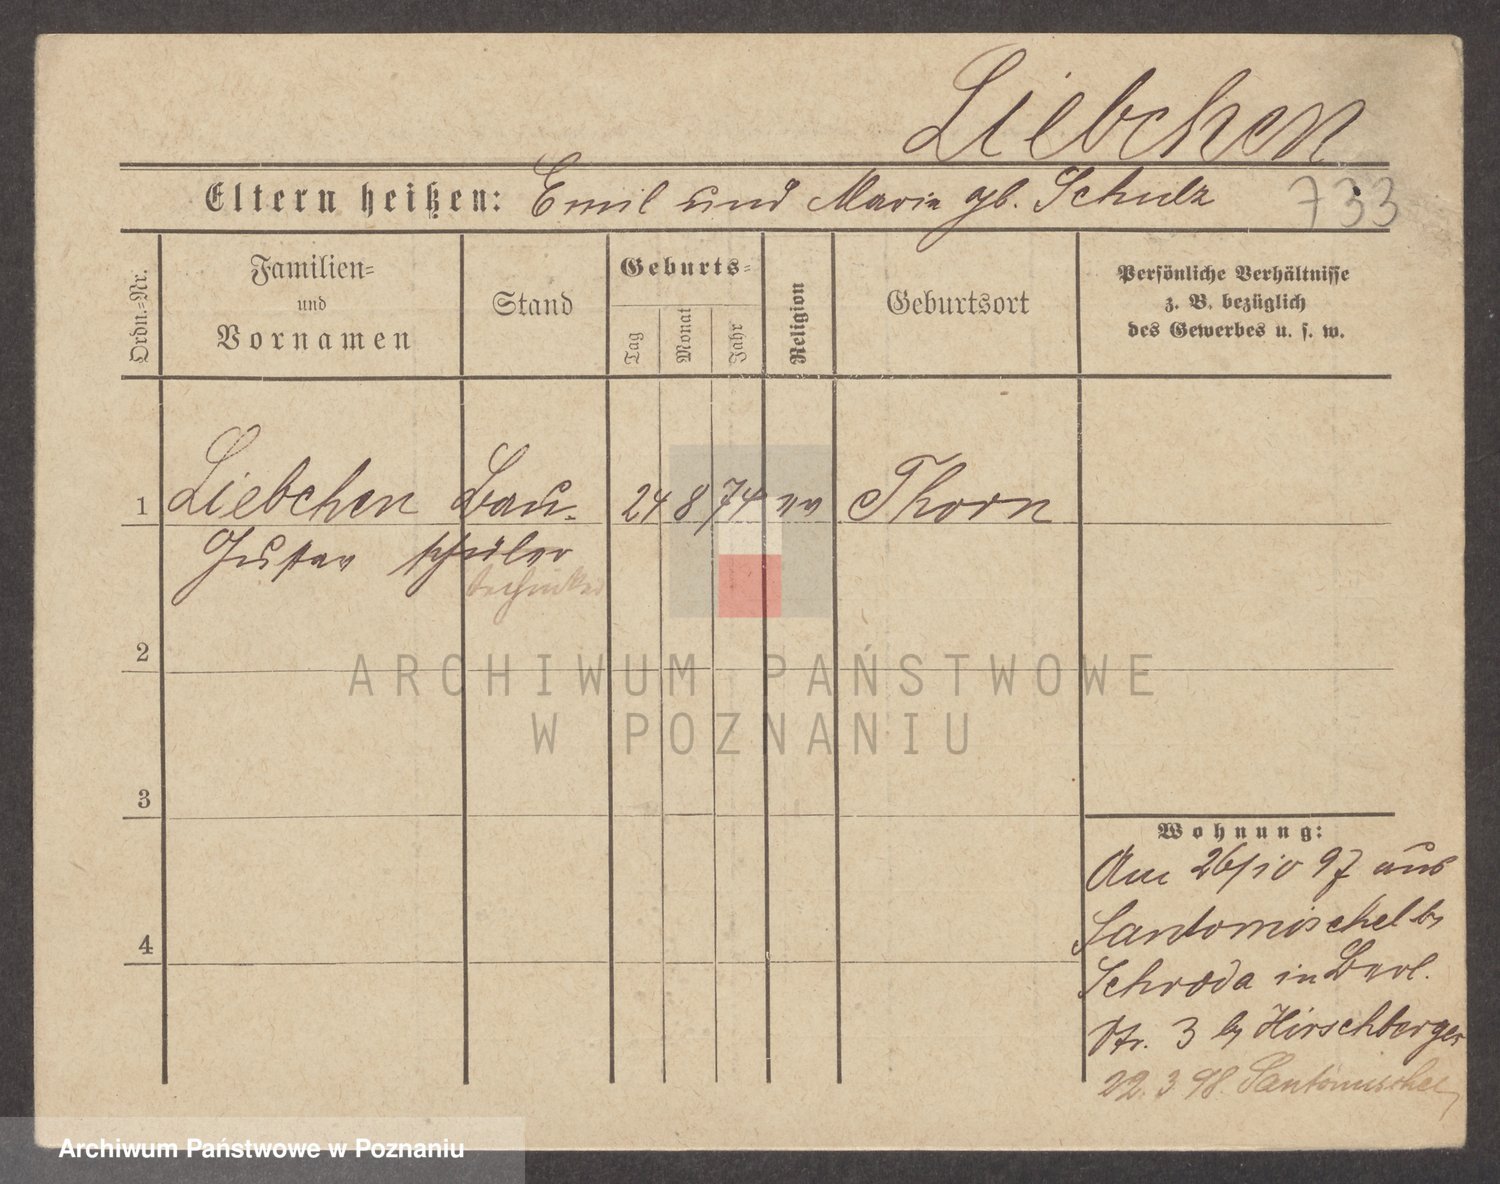 Liebchen
Eltern heißen: Emil und Marie gb. Schulz 733
Ordn.=Nr.
Familien=
und
Vornamen
Stand
Geburts=
Tag
Monat
Jahr
Religion
Geburtsort
Persönliche Verhältnisse
z. B. bezüglich
des Gewerbes u. s. w.
1 Liebchen Bau- 24 8 74 ev Thorn
Gustav schüler
techniker
2
ARCHIWUM PAŃSTWOWE
W POZNANIU
3
Wohnung:
Am 26/10 97 aus
Santomischel b/
4
Schroda in Berl.
Str. 3 b/ Hirschberger
22.3.98. Santomischel
Archiwum Państwowe w Poznaniu